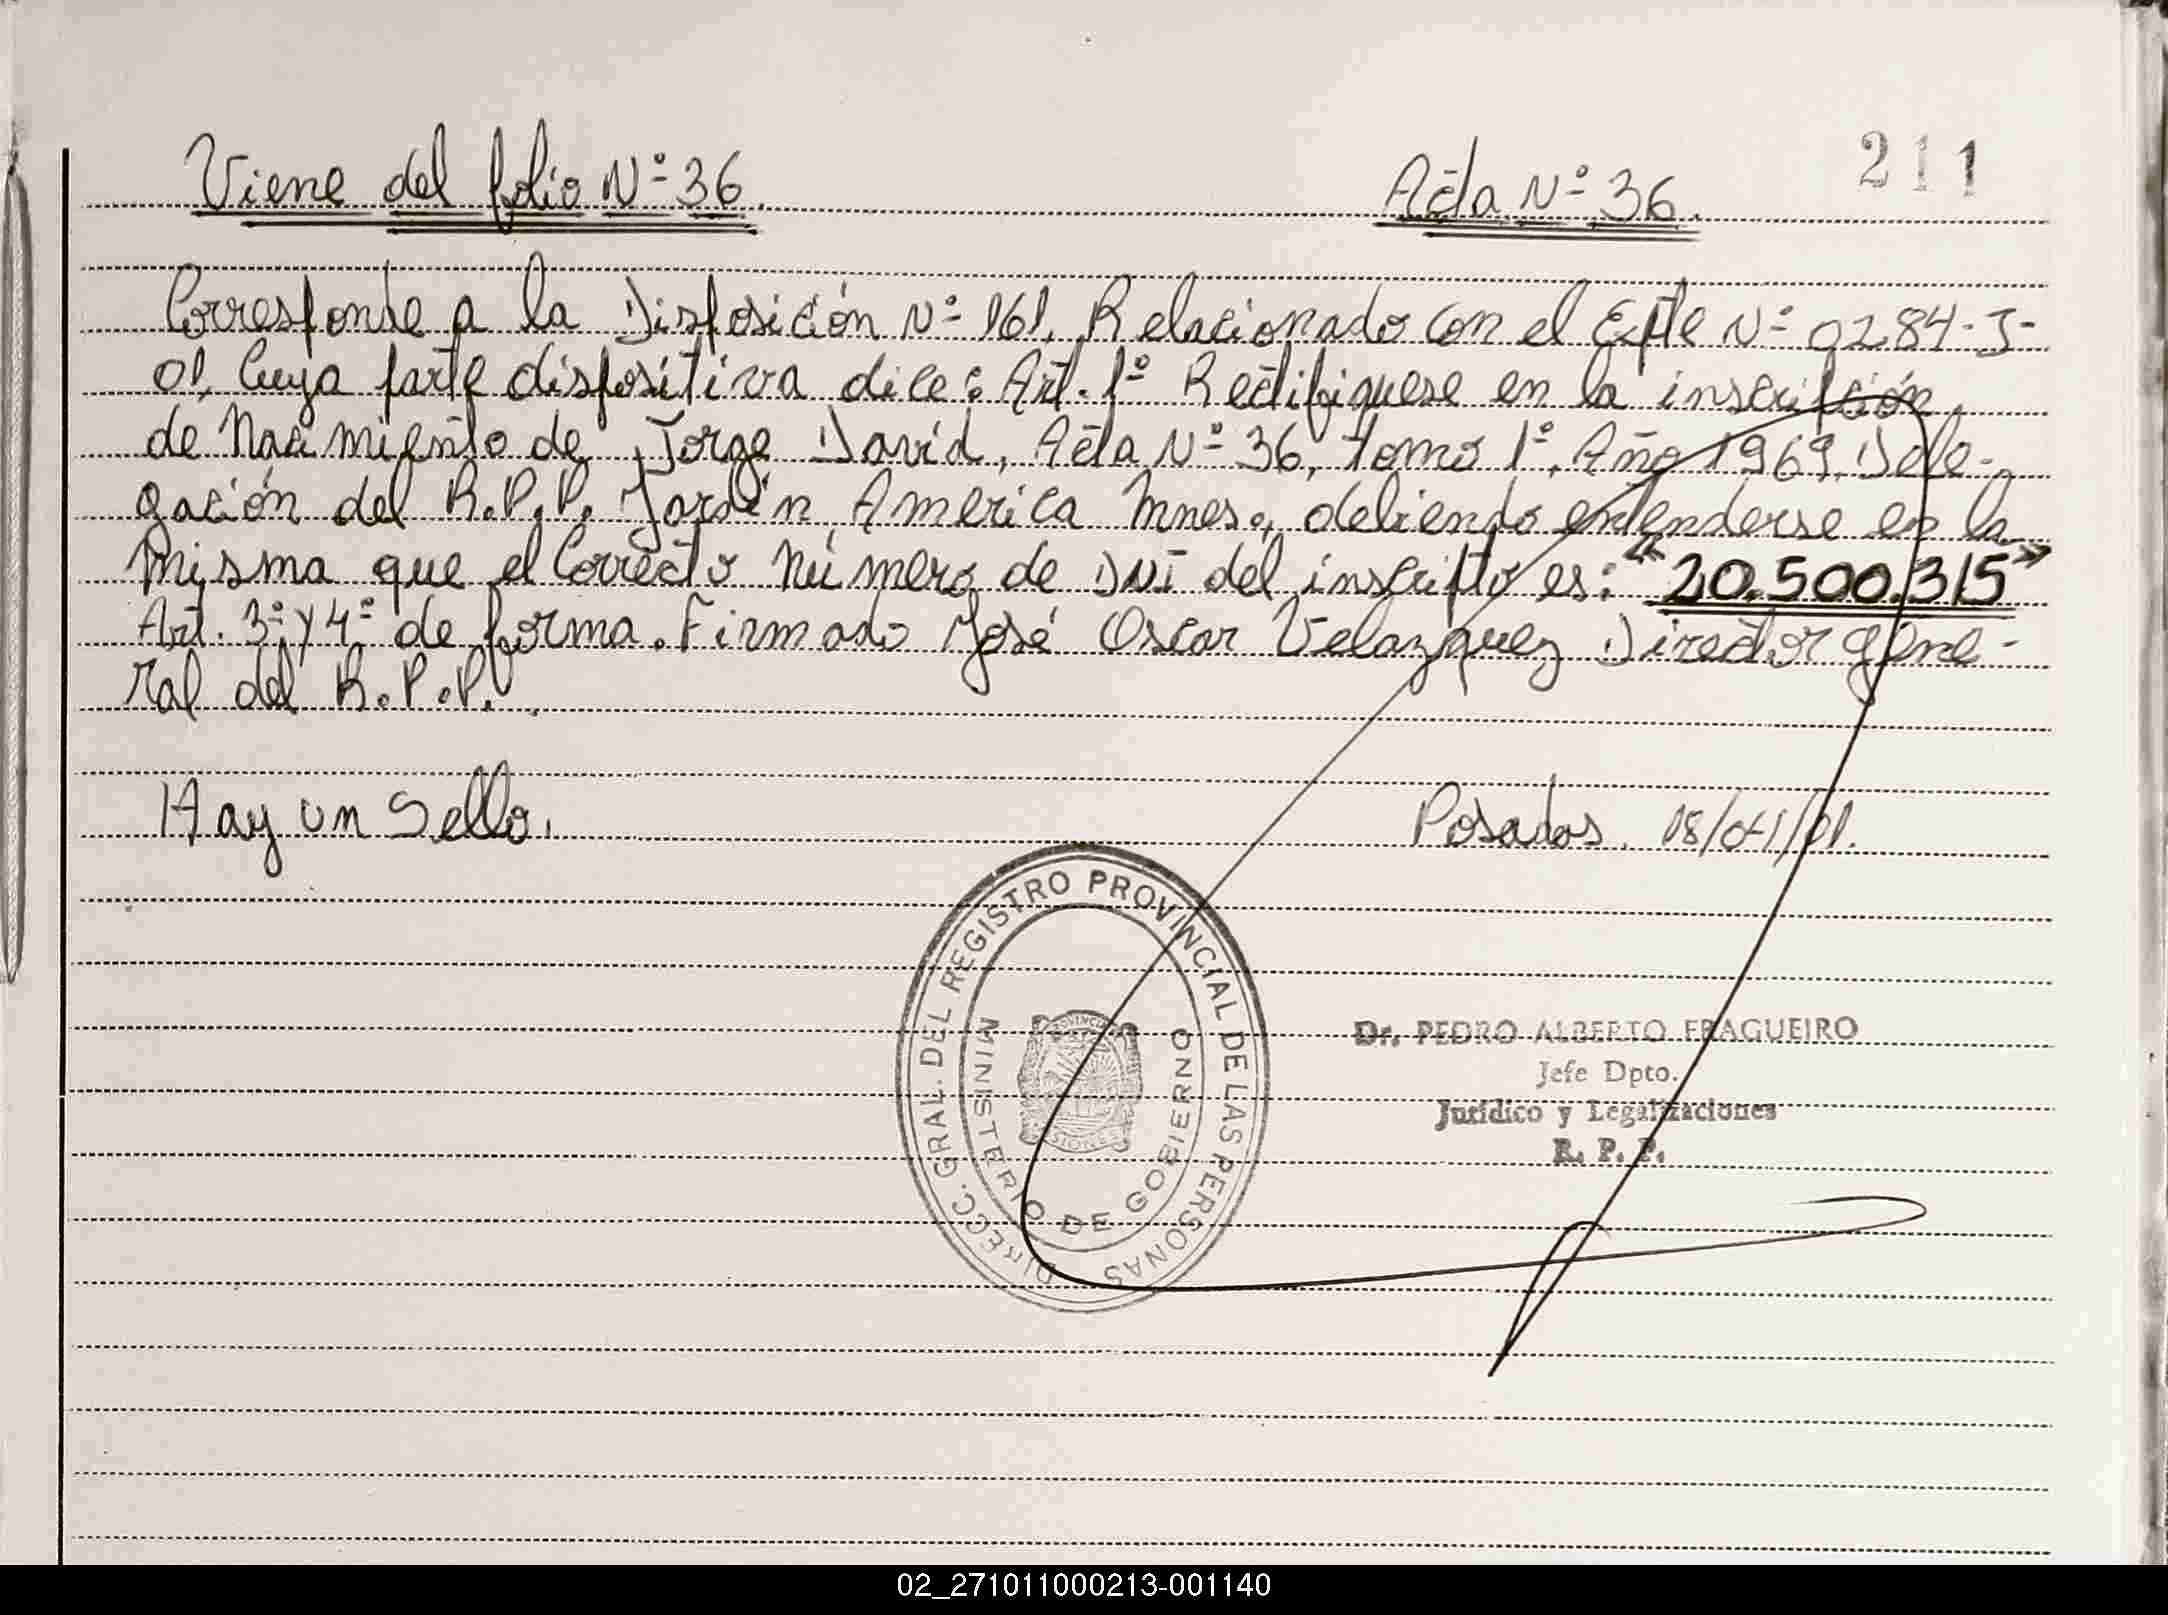 Viene del folio Nº 36.
Acta Nº 36.
211
Corresponde a la Disposición Nº 161, Relacionado con el Expte Nº 0284-J-
01, Cuya parte dispositiva dice: Art. 1º Rectifiquese en la inscripción
de Nacimiento de Jorge David, Acta Nº 36, Tomo 1º, Año 1969, Dele-
gación del R.P.P. Jardín América Mnes., debiendo entenderse en la
misma que el Correcto Número de DNI del inscripto es: "20.500.315"
Art. 3º y 4º de forma. Firmado José Oscar Velazquez Director Gene-
ral del R.P.P.
Hay un Sello.
Posadas,
DIRECC. GRAL. DEL REGISTRO PROVINCIAL DE LAS PERSONAS
MINISTERIO DE GOBIERNO
PROVINCIA
MISIONES
Dr. PEDRO ALBERTO FRAGUEIRO
Jefe Dpto.
Jurídico y Legalizaciones
R. P. P.
02_271011000213-001140